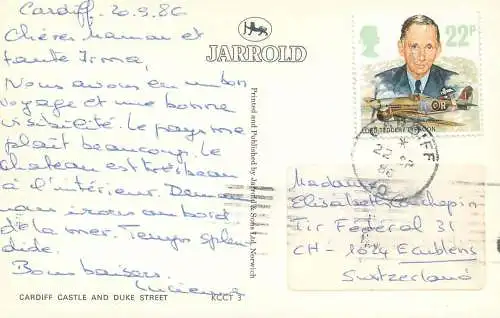 Cardiff. 20.9.86
Chères Maman et
tante Irma,
Nous avons eu un bon
voyage et une bonne
visibilité. Le pays me
plaît beaucoup. Le
chateau est très beau
à l'intérieur. Demain
nous irons au bord
de la mer. Temps splen
dide.
Bons baisers
CARDIFF CASTLE AND DUKE STREET
KCCT 3
JARROLD
Printed and Published by Jarrold & Sons Ltd, Norwich
22P
LORD TEDDER/TYPHOON
CARDIFF
Madame
Elisabeth
Tir Fédéral 31
CH - 1024 Ecublens
Switzerland